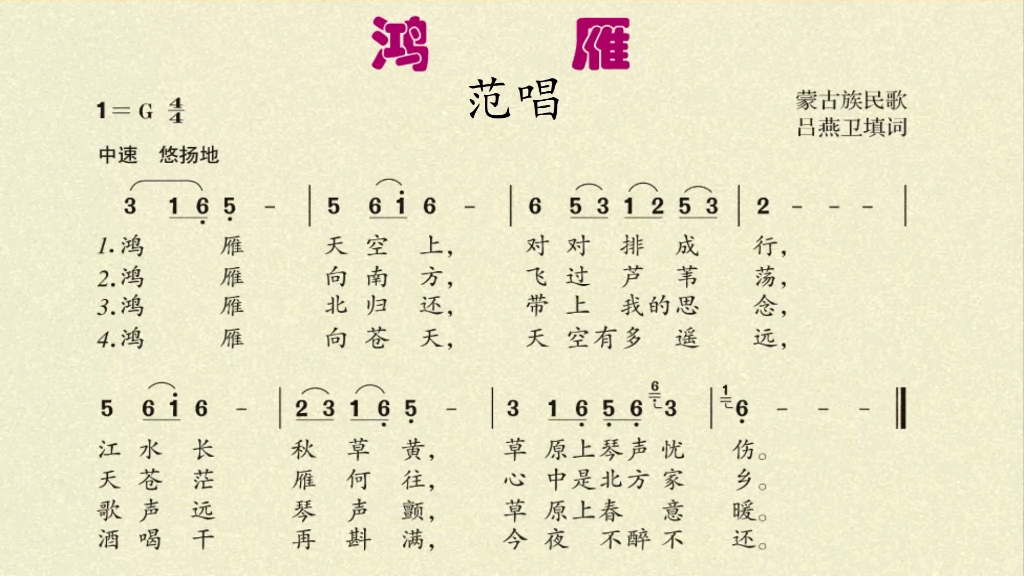 鸿 雁
范唱
1=G 4/4
蒙古族民歌
吕燕卫填词
中速 悠扬地
3 1 6 5 - | 5 6 1 6 - | 6 5 3 1 2 5 3 | 2 - - - |
1.鸿 雁 天 空 上, 对 对 排 成 行,
2.鸿 雁 向 南 方, 飞 过 芦 苇 荡,
3.鸿 雁 北 归 还, 带 上 我的思 念,
4.鸿 雁 向 苍 天, 天 空有多 遥 远,
5 6 1 6 - | 2 3 1 6 5 - | 3 1 6 5 6 6 3 | 1 6 - - - ‖
江 水 长 秋 草 黄, 草 原上琴声忧 伤。
天 苍 茫 雁 何 往, 心 中是北方家 乡。
歌 声 远 琴 声 颤, 草 原上春 意 暖。
酒 喝 干 再 斟 满, 今 夜 不醉不 还。